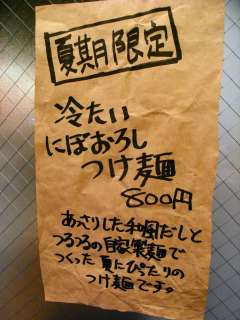 夏期限定
冷たい
にぼおろし
つけ麺
800円
あっさりした和風だしと
つるつるの自家製麺で
つくった夏にぴったりの
つけ麺です。